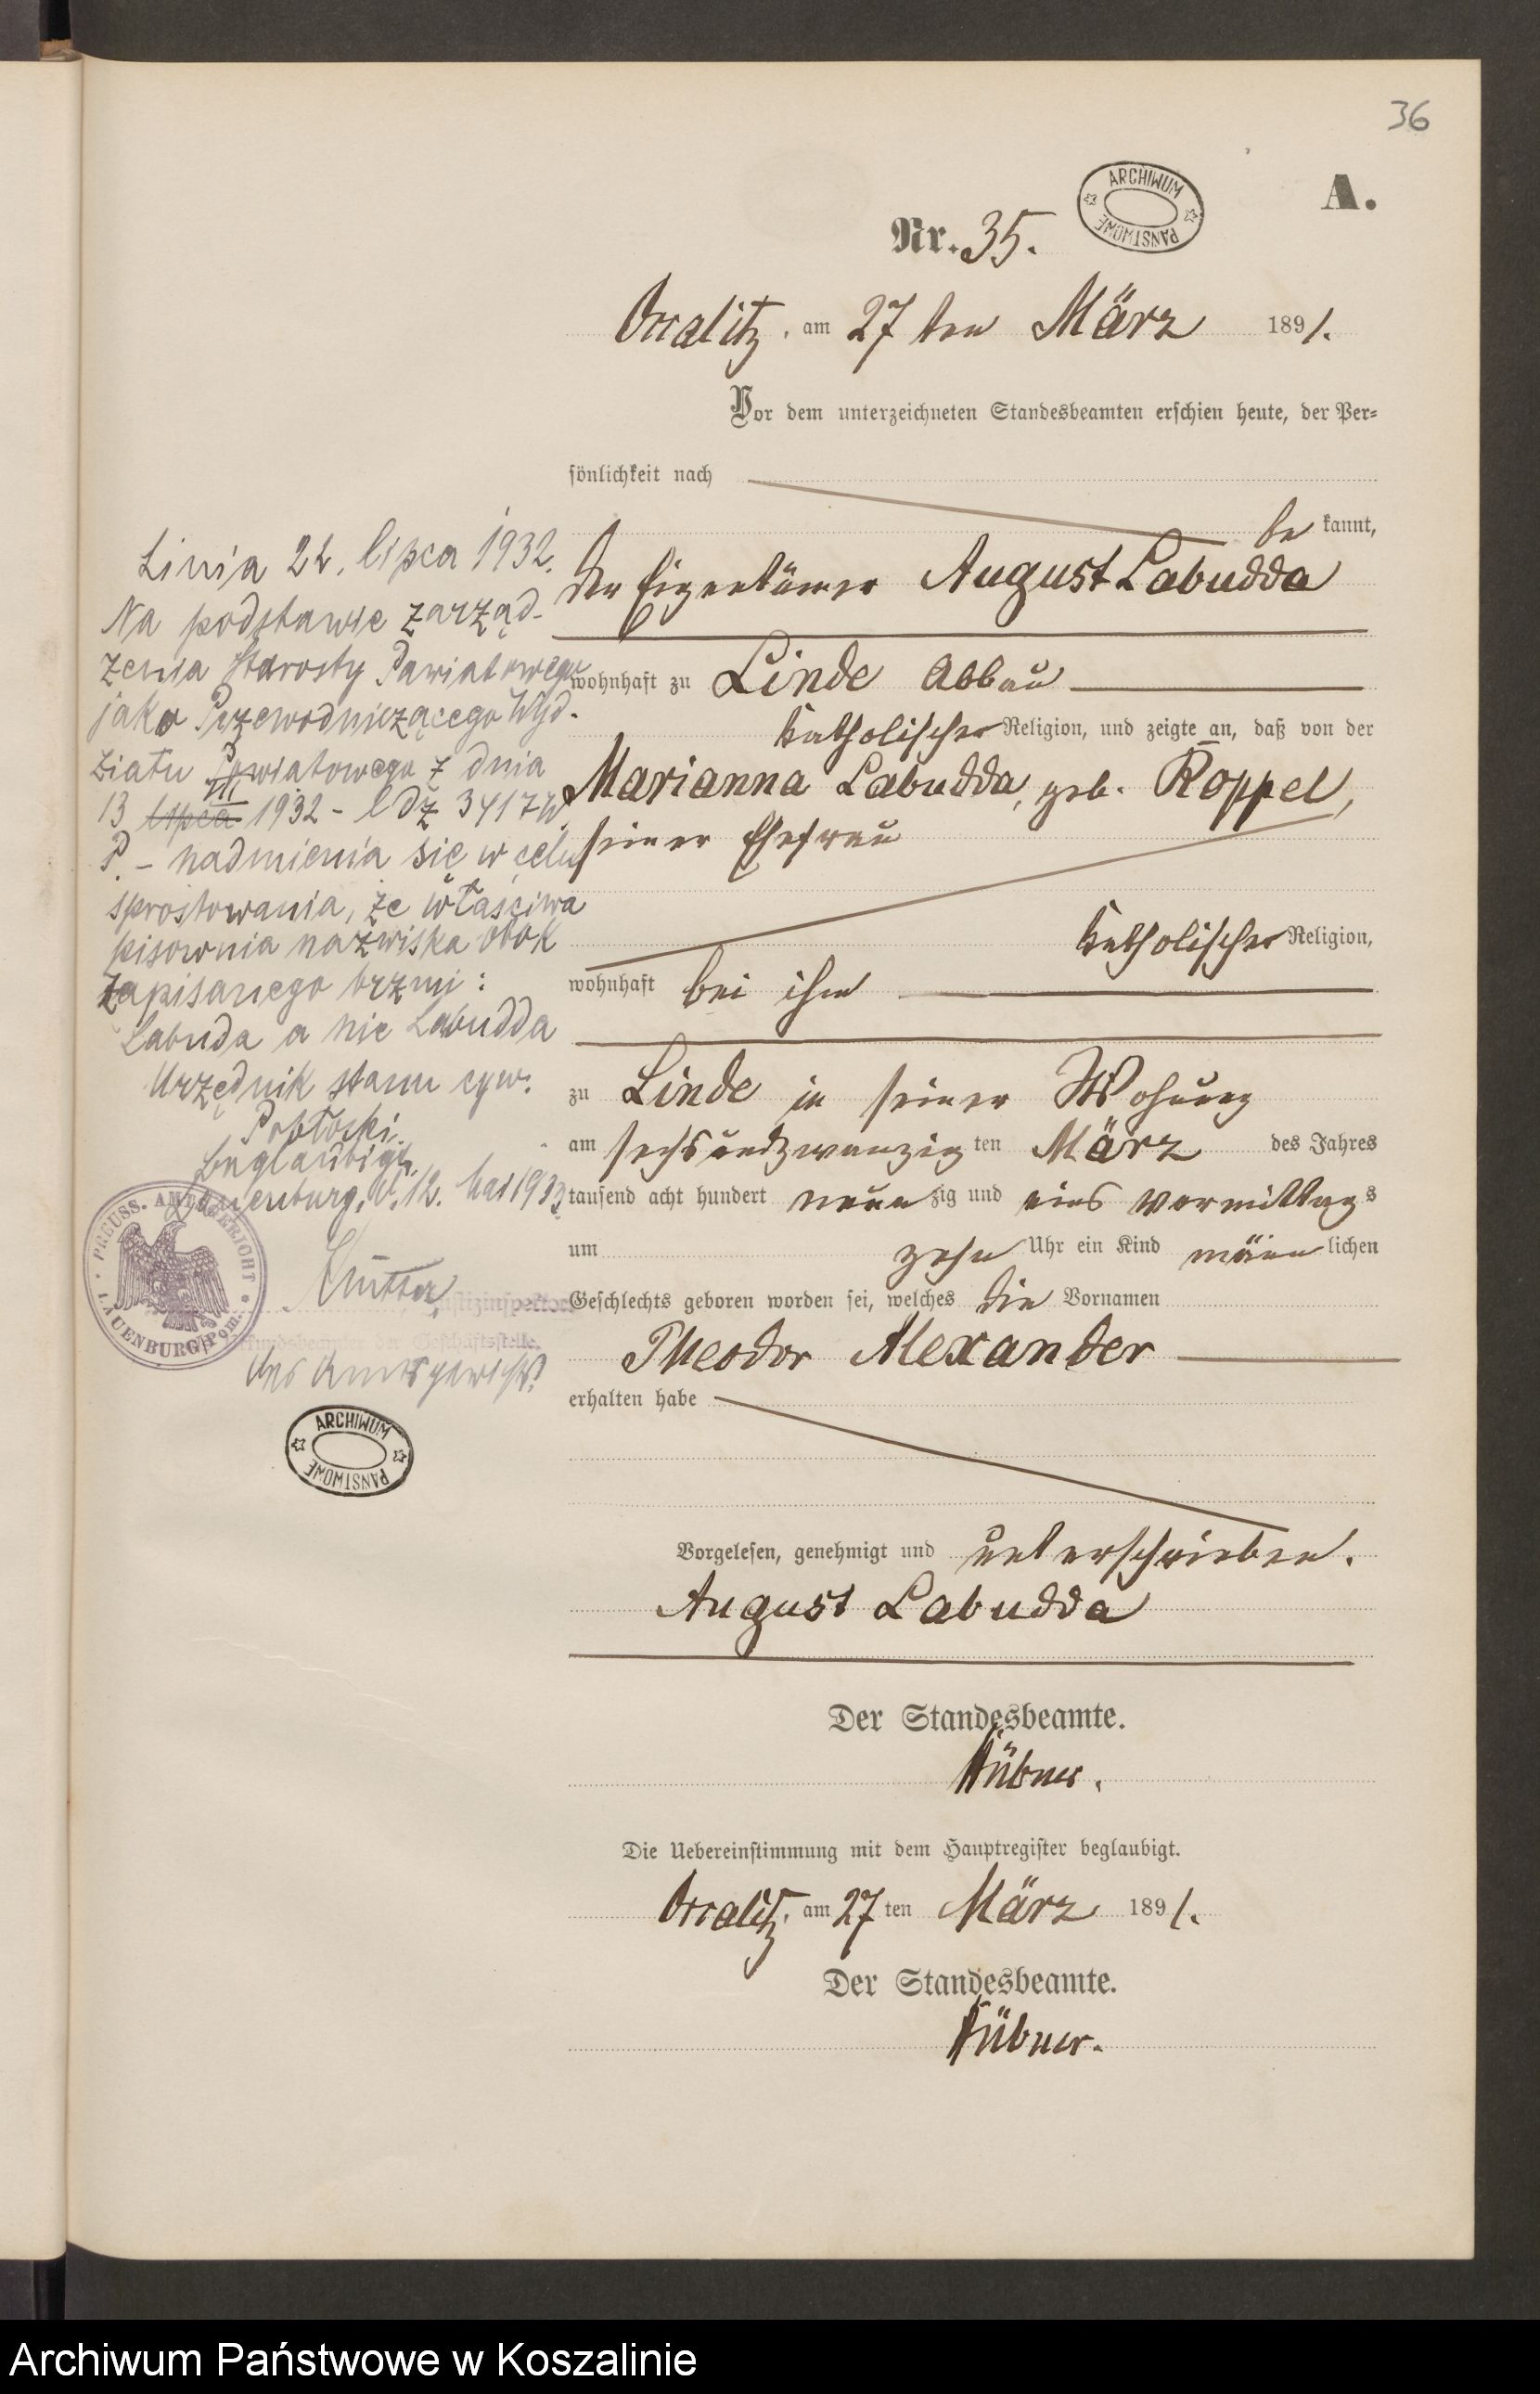 36
A.
Nr. 35.
ARCHIWUM PAŃSTWOWE
Occalitz, am 27 ten März 1891.
Vor dem unterzeichneten Standesbeamten erschien heute, der Per-
sönlichkeit nach
be kannt,
der Eigentümer August Labudda
wohnhaft zu Linde Abbau
katholischer Religion, und zeigte an, daß von der
Marianna Labudda, geb. Roppel,
seiner Ehefrau
katholischer Religion,
wohnhaft bei ihm
zu Linde in seiner Wohnung
am sechsundzwanzig ten März des Jahres
tausend acht hundert neun zig und eins vormittag s
um zehn Uhr ein Kind männ lichen
Geschlechts geboren worden sei, welches die Vornamen
Theodor Alexander
erhalten habe
Vorgelesen, genehmigt und unterschrieben.
August Labudda
Der Standesbeamte.
Hübner.
Die Uebereinstimmung mit dem Hauptregister beglaubigt.
Occalitz, am 27 ten März 1891.
Der Standesbeamte.
Hübner.
Linia 22. lipca 1932.
Na podstawie zarząd-
zenia Starosty Powiatowego
jako Przewodniczącego Wyd-
ziału Powiatowego z dnia
VII
13 lipca 1932 - l dz 3417 W.
P. - nadmienia się w celu
sprostowania, że właściwa
pisownia nazwiska obok
zapisanego brzmi:
Labuda a nie Labudda
Urzędnik stanu cyw.
Pobłocki.
Beglaubigt.
Lauenburg, d. 12. Mai 1933
PREUSS. AMTSGERICHT
LAUENBURG/Pom.
Justizinspektor
Urkundsbeamter der Geschäftsstelle
des Amtsgerichts
ARCHIWUM PAŃSTWOWE
Archiwum Państwowe w Koszalinie